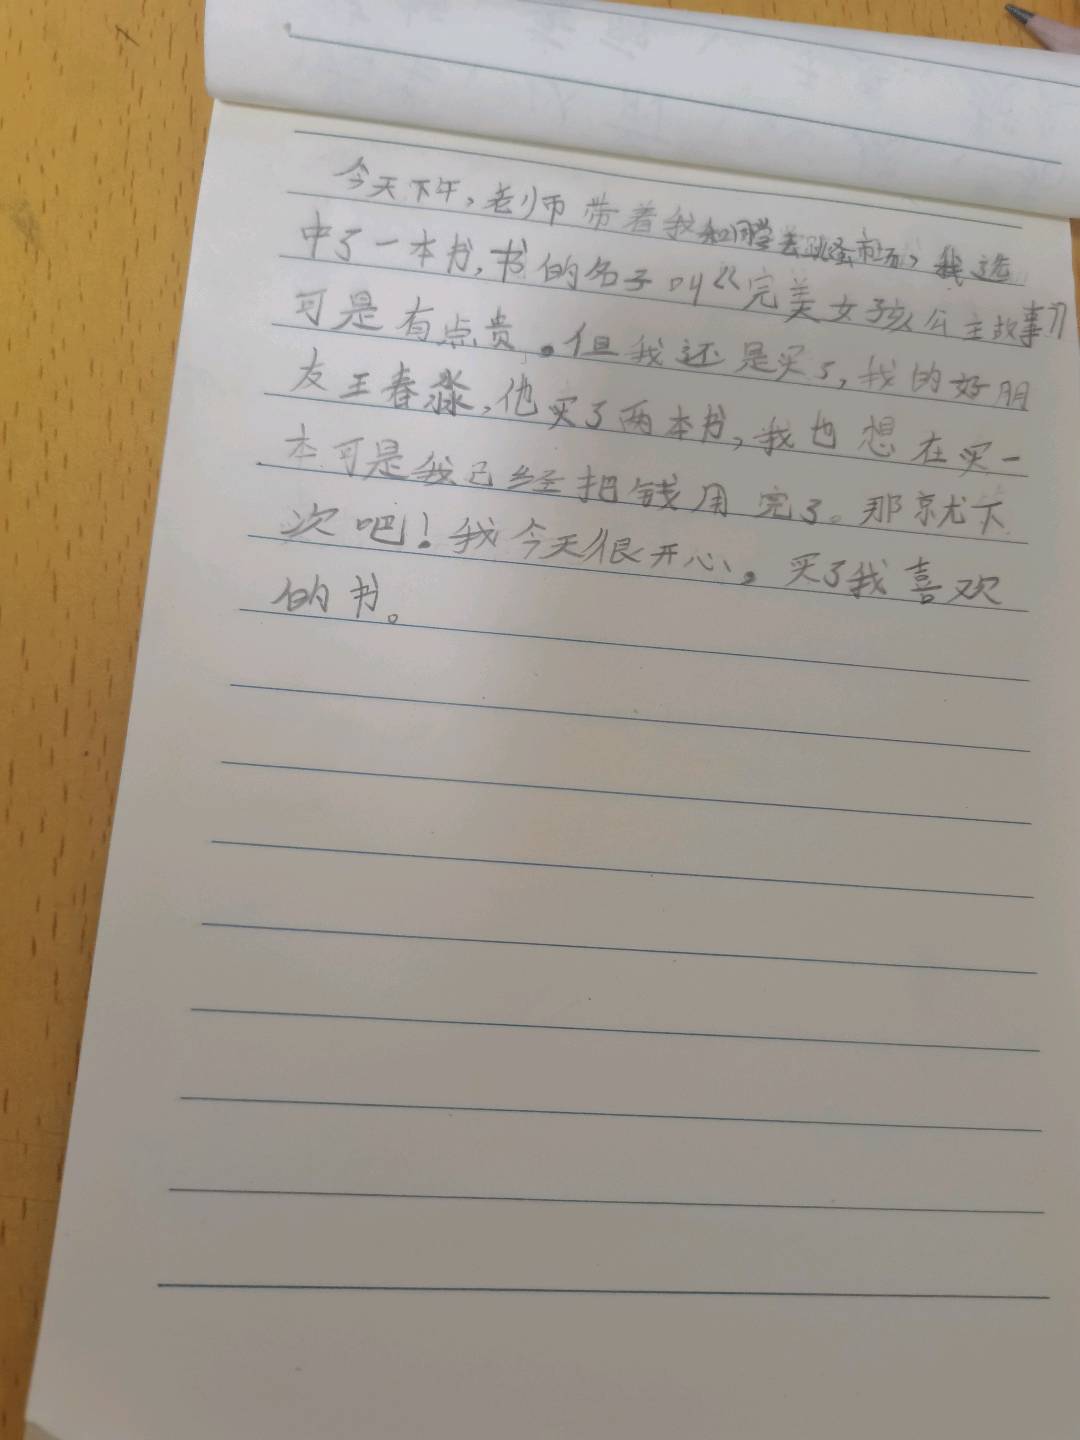 今天下午，老师带着我和同学去跳蚤市场，我选
中了一本书，书的名子叫《完美女孩公主故事》
可是有点贵。但我还是买了，我的好朋
友王春淼，他买了两本书，我也想在买一
本可是我己经把钱用完了。那就下
次吧！我今天很开心。买了我喜欢
的书。